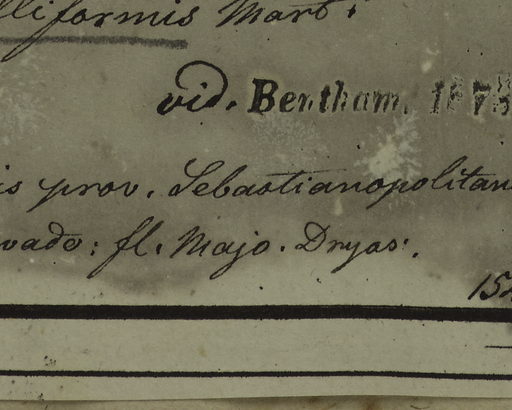 lliformis Mart.
vid. Bentham.
is prov. Sebastianopolitan
vado: fl. Majo. Dryas.
15